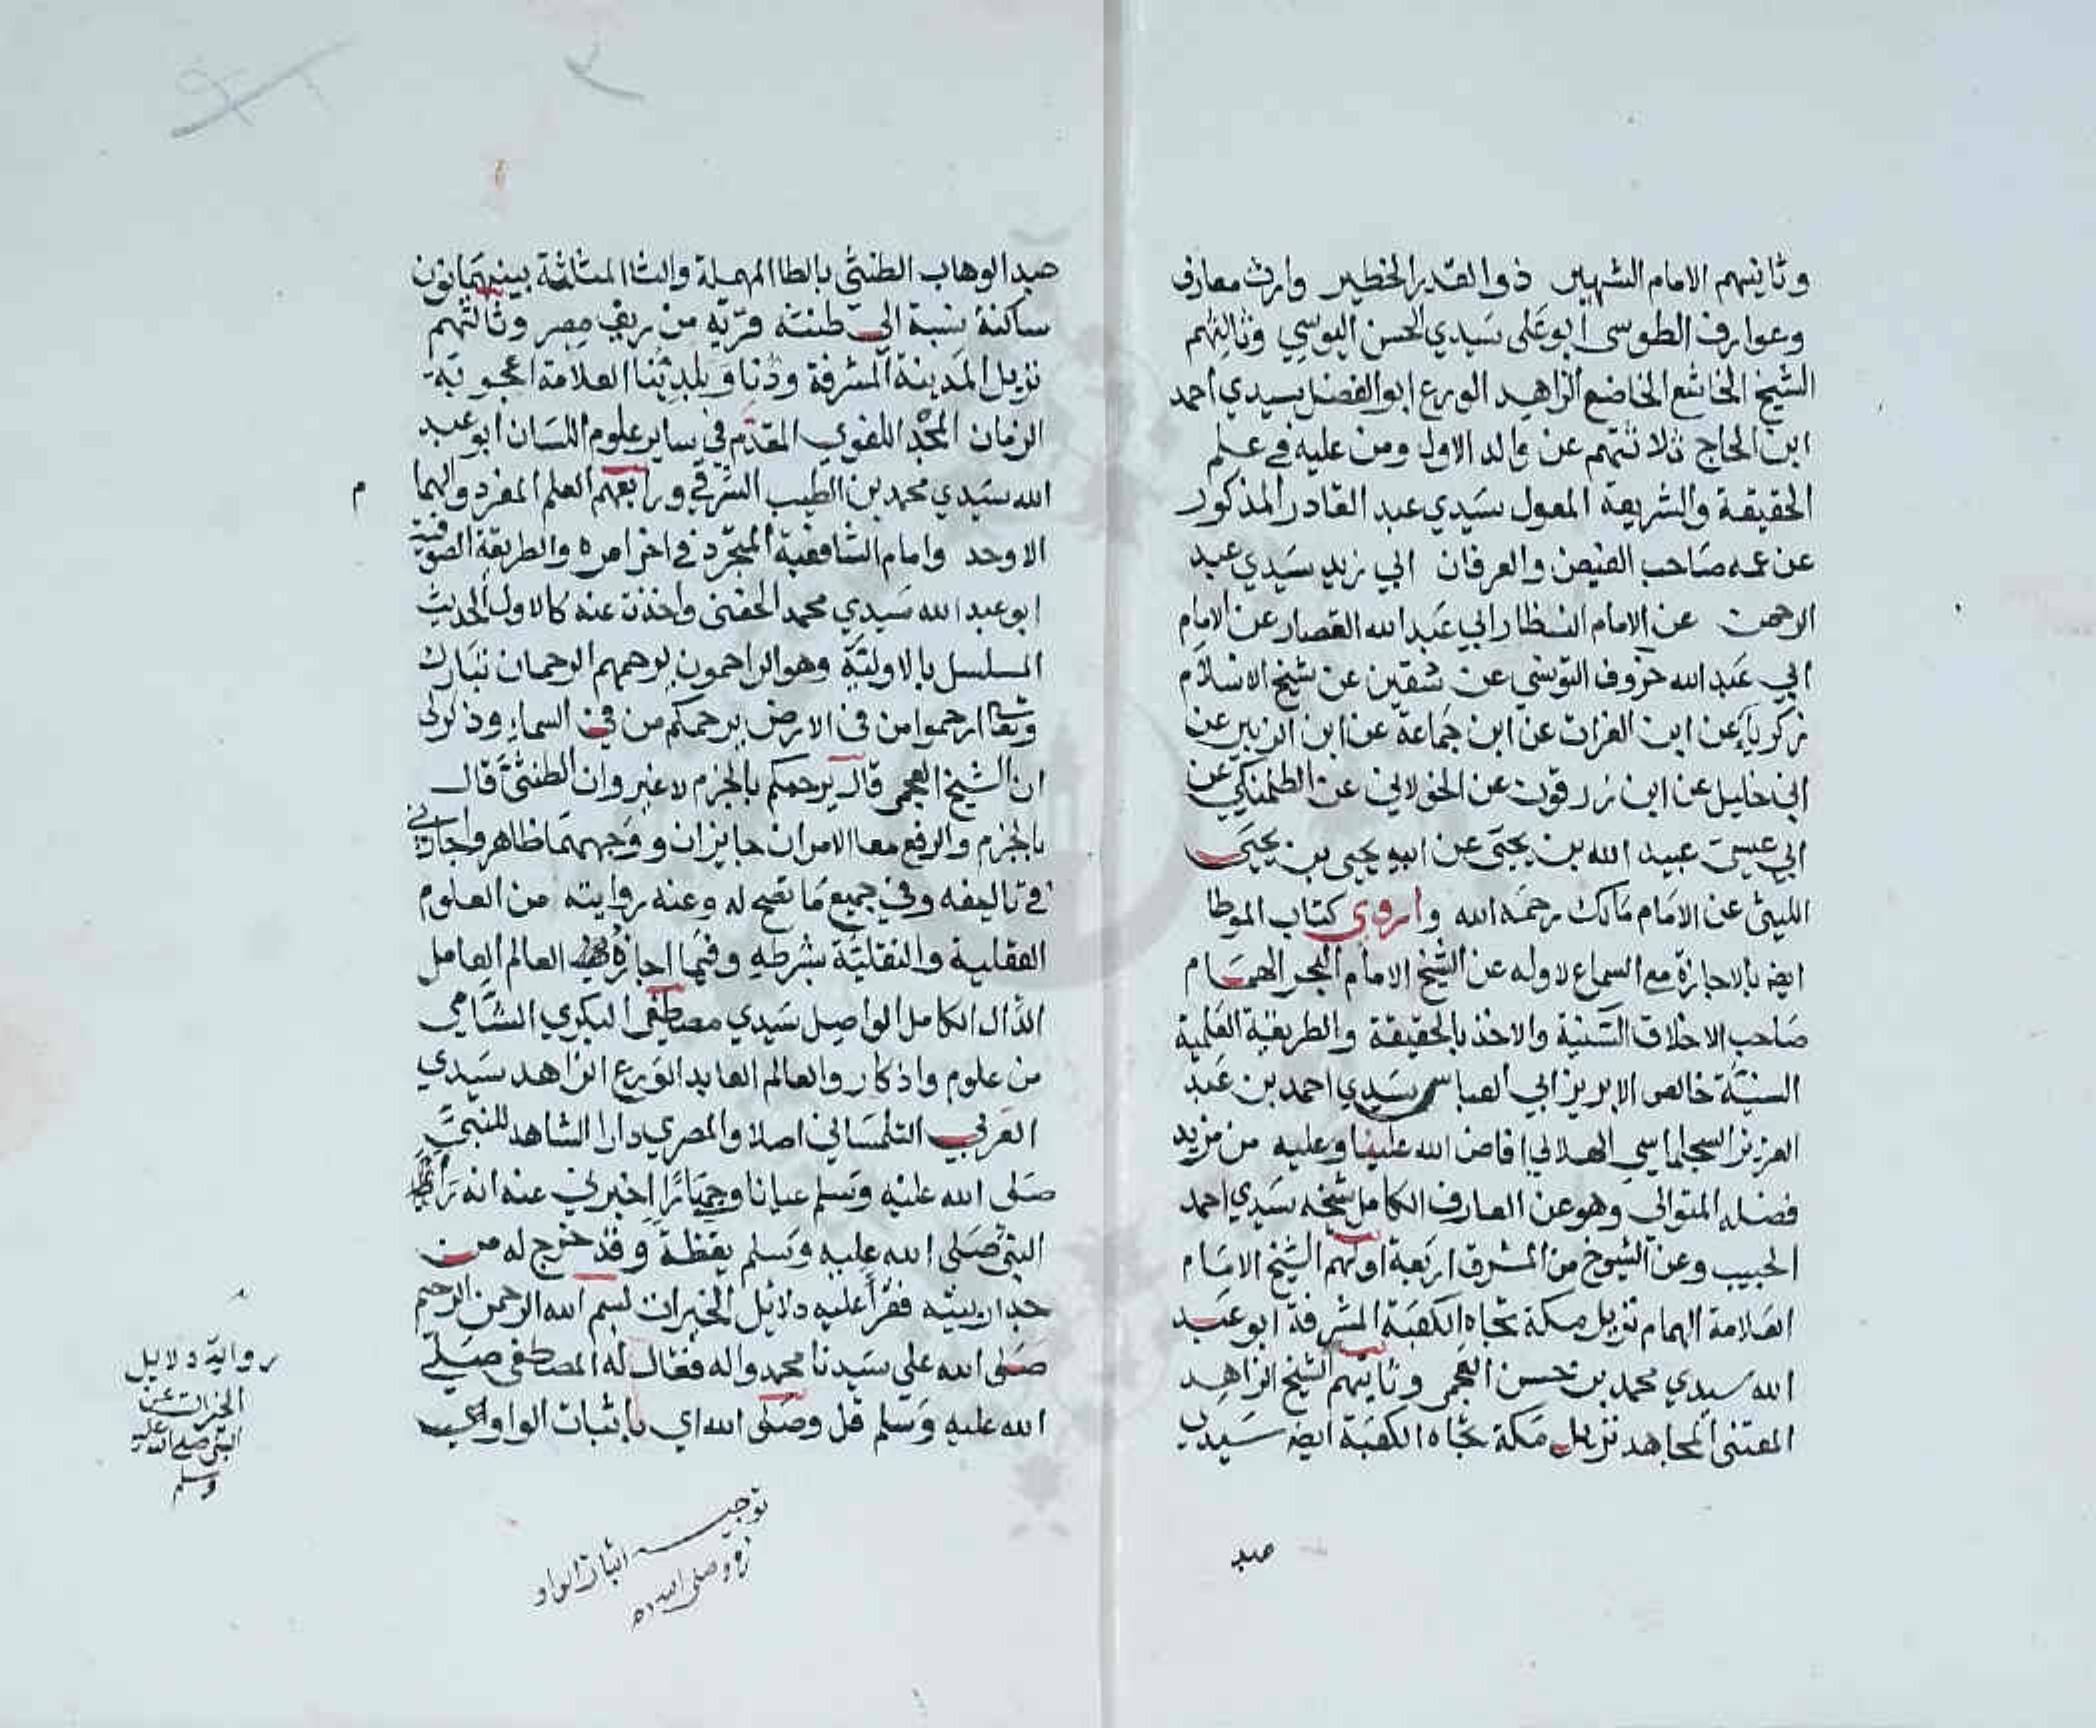 وثانيهم الامام الشهير ذو القدر الخطير وارث معارف
وعوارف الطوسى ابو على سيدي الحسن اليوسي وثالثهم
الشيخ الخاشع الخاضع الزاهد الورع ابو الفضل سيدي احمد
ابن الحاج ثلاثتهم عن والد الاول ومن عليه في علم
الحقيقة والشريعة المعول سيدي عبد القادر المذكور
عن عمه صاحب الفيض والعرفان ابي زيد سيدي عبد
الرحمن عن الامام النظار ابي عبد الله القصار عن الامام
ابي عبد الله خروف التونسي عن سقين عن شيخ الاسلام
زكرياء عن ابن الفرات عن ابن جماعة عن ابن الزبير عن
ابي خليل عن ابن زرقون عن الخولاني عن الطلمنكي عن
ابي عيسى عبيد الله بن يحيى عن ابيه يحيى بن يحيى
الليثي عن الامام مالك رحمه الله واروي كتاب الموطا
ايضا بالاجازة مع السماع لاوله عن الشيخ الامام البحر الهمام
صاحب الاخلاق السنية والاخذ بالحقيقة والطريقة العلمية
السنية خالص الابريز ابي العباس سيدي احمد بن عبد
العزيز السجلماسي الهلالي افاض الله علينا وعليه من مزيد
فضله المتوالي وهو عن العارف الكامل شيخه سيدي احمد
الحبيب وعن الشيوخ من المشرق اربعة اولهم الشيخ الامام
العلامة الهمام نزيل مكة تجاه الكعبة المشرفة ابو عبد
الله سيدي محمد بن حسن العجمي وثانيهم الشيخ الزاهد
المفتى المجاهد نزيل مكة تجاه الكعبة ايضا سيدي
عبد
عبد الوهاب الطنتثى بالطا المهملة والثا المثلثة بينهما نون
ساكنة نسبة الى طنتثه قرية من ريف مصر وثالثهم
نزيل المدينة المشرفة ودنا وبلدينا العلامة اعجوبة
الزمان المجد اللغوي المقدم في ساير علوم اللسان ابو عبد
الله سيدي محمد بن الطيب الشرقي ورابعهم العلم المفرد والهمام
الاوحد وامام الشافعية المتجرد في اخر امره والطريقة الصوفية
ابو عبد الله سيدي محمد الحفني واخذت عنه كالاول الحديث
المسلسل بالاولية وهو الراحمون يرحمهم الرحمان تبارك
وتعالى ارحموا من في الارض يرحمكم من في السماء وذكر لي
ان الشيخ العجمي قال يرحمكم بالجزم لا غير وان الطنتثي قال
بالجزم والرفع معا الامران جايزان ووجههما ظاهر واجازني
في تاليفه وفي جميع ما تصح له وعنه روايته من العلوم
العقلية والنقلية بشرطه وفيما اجازه العالم العامل
الدال الكامل الواصل سيدي مصطفى البكري الشامي
من علوم واذكار والعالم العابد الورع الزاهد سيدي
العربي التلمساني اصلا والمصري دارا الشاهد للنبي
صلى الله عليه وسلم عيانا وجهارا اخبرني عنه انه رأى
النبي صلى الله عليه وسلم يقظة وقد خرج له من
جدار بيته فقرأ عليه دلائل الخيرات بسم الله الرحمن الرحيم
صلى الله على سيدنا محمد واله فقال له المصطفى صلى
الله عليه وسلم قل وصلى الله اي باثبات الواو
رواية دلايل
الخيرات عن
النبي صلى الله عليه
وسلم
توجيه اثبات الواو
في وصلى الله